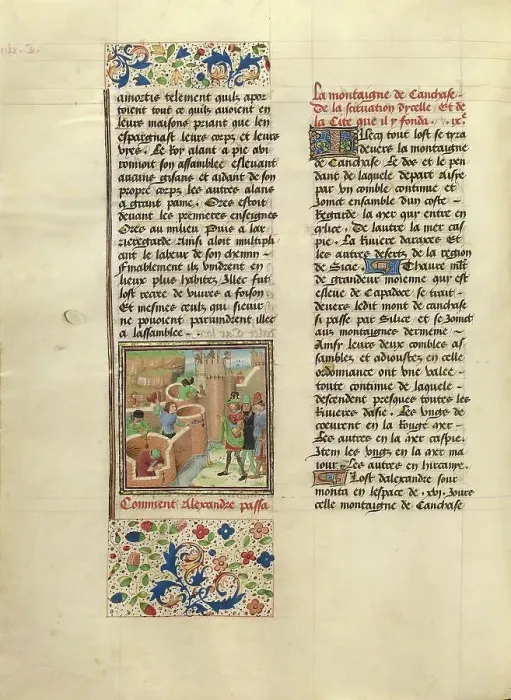 amortis telement quilz apor
toient tout ce quilz auoient en
leurs maisons priant que len
espargnast leurs corps et leurs
vyes. Le Roy alant a pie aui
ronnoit son assamblee esleuant
aucuns gisans et aidant de son
propre corps les autres alans
a grant paine. Ores estoit
deuant les premieres enseignes
Ores au milieu Puis a lar
rieregarde Ainsi aloit multipli
ant le labeur de son chemin -
Finablement ilz vindrent en
lieux plus habitez Illec fut
lost recree de viures a foison
Et mesmes ceulx qui sieuir
ne pouoient paruindrent illec
a lassamblee -
Comment Alexandre passa
La montaigne de Canchase -
De la scituation dycelle Et de
la Cite que il y fonda. ixe
Illecq tout lost se tyra
deuers la montaigne
de Canchase Le dos et le pen
dant de laquele depart Asye
par vn comble continue et
Jomet ensamble dun coste -
Regarde la mer qui entre en
cylice. De lautre la mer cas
pie. La Riuiere daraxes et
les autres desertz de la region
de Sicie. Thaure mlt
de grandeur moienne qui est
esleue de Capadoce se trait -
deuers ledit mont de canchase
si passe par Silice et se Jomet
aux montaignes dermenie -
Ainsy leurs deux combles as
samblez et adioustez en celle
ordonnance ont vne valee -
toute continue de laquele -
descendent presques toutes les
Riuieres dasie. Les vngs de
coeurent en la Rouge mer -
Les autres en la mer caspie.
Item les vngs en la mer ma
iour Les autres en hircanie.
Lost dalexandre sour
monta en lespace de .xvj. Jours
celle montaigne de Canchase